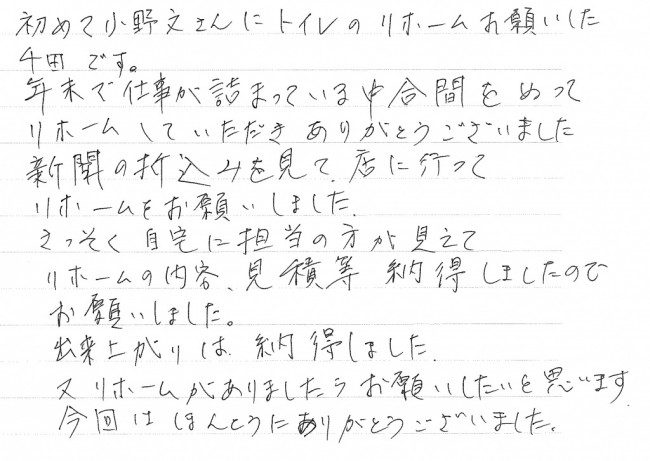 初めて小野文さんにトイレのリホームお願いした
千田です。
年末で仕事が詰まっている中合間をめって
リホームしていただきありがとうございました
新聞の折込みを見て、店に行って
リホームをお願いしました、
さっそく自宅に担当の方が見えて
リホームの内容、見積等納得しましたので
お願いしました。
出来上がりは、納得しました、
又リホームがありましたらお願いしたいと思います
今回はほんとうにありがとうございました。